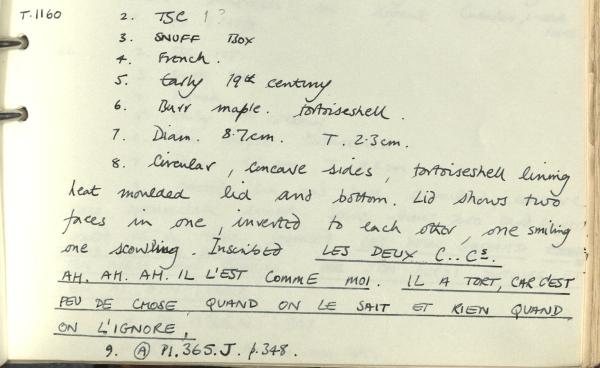 T.1160
2. TSC 1?
3. SNUFF BOX
4. French.
5. Early 19th century
6. Burr maple. tortoiseshell.
7. Diam. 8.7cm. T. 2.3cm.
8. Circular, concave sides, tortoiseshell lining
heat moulded lid and bottom. Lid shows two
faces in one, inverted to each other, one smiling
one scowling. Inscribed LES DEUX C..Cs.
AH. AH. AH. IL L'EST COMME MOI. IL A TORT, CAR C'EST
PEU DE CHOSE QUAND ON LE SAIT ET RIEN QUAND
ON L'IGNORE.
9. A Pl.365.J. p.348.